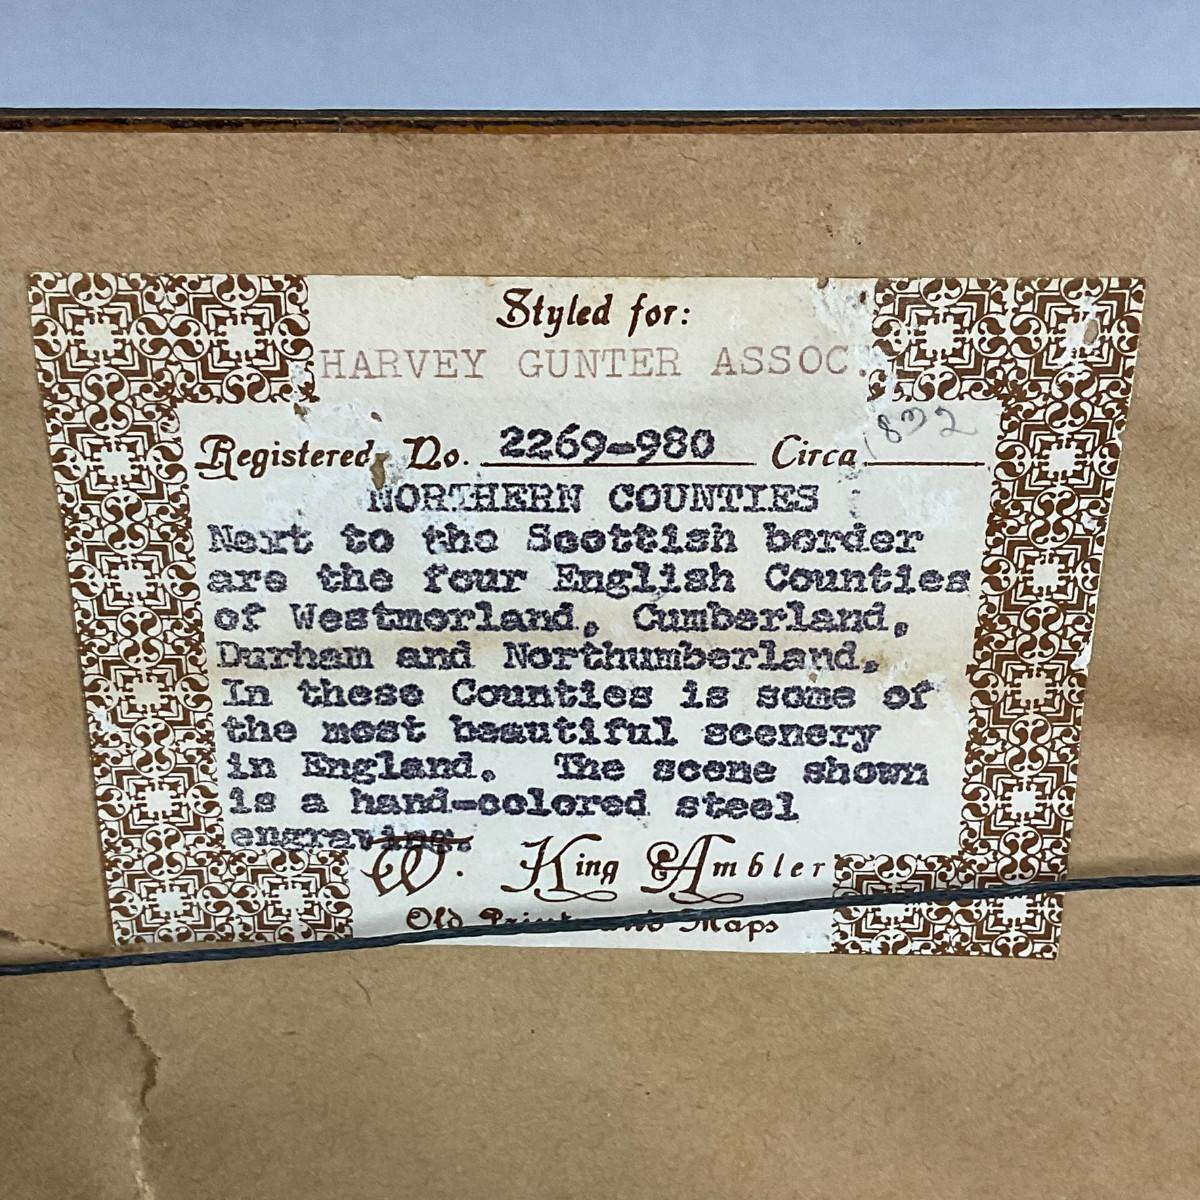 Styled for:
HARVEY GUNTER ASSOC.
Registered No. 2269-980 Circa 1832
NORTHERN COUNTIES
Next to the Scottish border
are the four English Counties
of Westmorland, Cumberland,
Durham and Northumberland.
In these Counties is some of
the most beautiful scenery
in England. The scene shown
is a hand-colored steel
engraving.
W. King Ambler
Old Prints and Maps